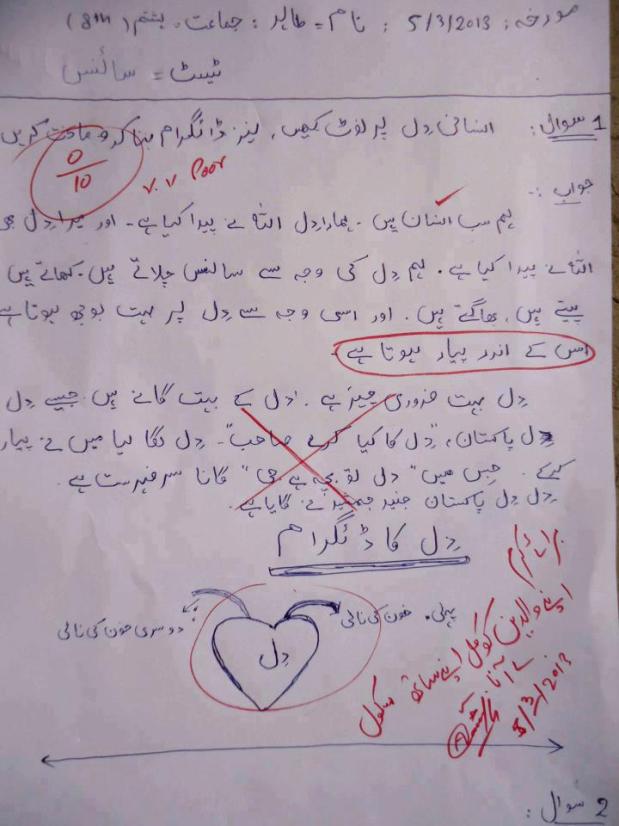 مورخہ: 5/3/2013 : نام = طاہر : جماعت = ہشتم (8th)
ٹیسٹ = سائنس
سوال 1: انسانی دِل پر نوٹ لکھیں، نیز ڈائگرام بنا کر وضاحت کریں
0/10
v.v Poor
جواب :-
ہم سب انسان ہیں۔ ہمارا دِل اللہ نے پیدا کیا ہے۔ اور میرا دِل بھی
اللہ نے پیدا کیا ہے۔ ہم دِل کی وجہ سے سانس چلاتے ہیں۔ کھاتے ہیں
پیتے ہیں، بھاگتے ہیں۔ اور اسی وجہ سے دِل پر بہت بوجھ ہوتا ہے
اس کے اندر پیار ہوتا ہے
دِل بہت ضروری چیز ہے۔ دِل کے بہت گانے ہیں جیسے دِل
دِل پاکستان، "دِل کا کیا کرے صاحب"۔ دِل لگا لیا میں نے پیار
کرکے۔ جس میں "دل تو بچہ ہے جی" گانا سرفہرست ہے۔
دِل دِل پاکستان جنید جمشید نے گایا ہے۔
دِل کا ڈائگرام
پہلی خون کی نالی
دوسری خون کی نالی
دِل
اپنے والدین کو کل اپنے ساتھ سکول
لے آنا
5/3/2013
سوال 2 :